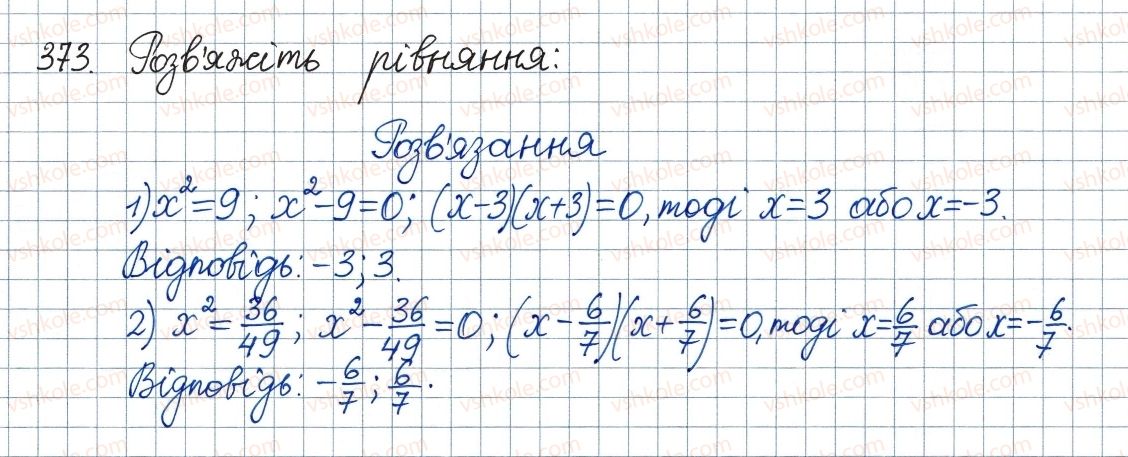 373. Розв'яжіть рівняння:
Розв'язання
1) x²=9; x²-9=0; (x-3)(x+3)=0, тоді x=3 або x=-3.
Відповідь: -3; 3.
2) x²=36/49; x²-36/49=0; (x-6/7)(x+6/7)=0, тоді x=6/7 або x=-6/7.
Відповідь: -6/7; 6/7.